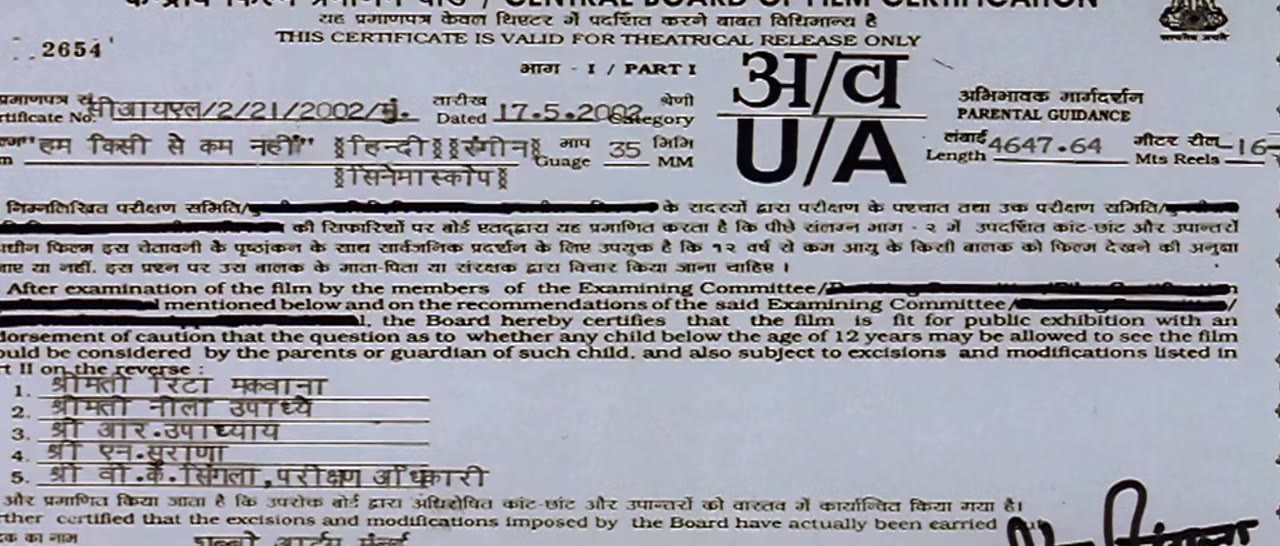 केन्द्रीय फिल्म प्रमाणन बोर्ड / CENTRAL BOARD OF FILM CERTIFICATION
यह प्रमाणपत्र केवल थिएटर में प्रदर्शित करने बाबत विधिमान्य है
2654
THIS CERTIFICATE IS VALID FOR THEATRICAL RELEASE ONLY
सत्यमेव जयते
भाग - I / PART I
अ/व
U/A
प्रमाणपत्र सं. सीआयएल/2/21/2002/मुं. तारीख 17.5.2002 श्रेणी
rtificate No. Dated Category
अभिभावक मार्गदर्शन
PARENTAL GUIDANCE
"हम किसी से कम नहीं" हिन्दी रंगीन माप 35 मिमि
Guage MM
सिनेमास्कोप
लंबाई 4647.64 मीटर रील 16
Length Mts Reels
निम्नलिखित परीक्षण समिति/ के सदस्यों द्वारा परीक्षण के पश्चात तथा उक्त परीक्षण समिति/
की सिफारिशों पर बोर्ड एतद्द्वारा यह प्रमाणित करता है कि पीछे संलग्न भाग - २ में उपदर्शित कांट-छांट और उपान्तरों
धीन फिल्म इस चेतावनी के पृष्ठांकन के साथ सार्वजनिक प्रदर्शन के लिए उपयुक्त है कि १२ वर्ष से कम आयु के किसी बालक को फिल्म देखने की अनुज्ञा
जाए या नहीं, इस प्रश्न पर उस बालक के माता-पिता या संरक्षक द्वारा विचार किया जाना चाहिए।
After examination of the film by the members of the Examining Committee/
mentioned below and on the recommendations of the said Examining Committee/ /
, the Board hereby certifies that the film is fit for public exhibition with an
dorsement of caution that the question as to whether any child below the age of 12 years may be allowed to see the film
ould be considered by the parents or guardian of such child, and also subject to excisions and modifications listed in
rt II on the reverse :
1. श्रीमती रिटा मकवाना
2. श्रीमती नीला उपाध्ये
3. श्री आर.उपाध्याय
4. श्री एन.सुराणा
5. श्री वी.के.सिंगला,परीक्षण अधिकारी
और प्रमाणित किया जाता है कि उपरोक्त बोर्ड द्वारा अधिरोपित कांट-छांट और उपान्तरों को वास्तव में कार्यान्वित किया गया है।
rther certified that the excisions and modifications imposed by the Board have actually been carried
दक का नाम